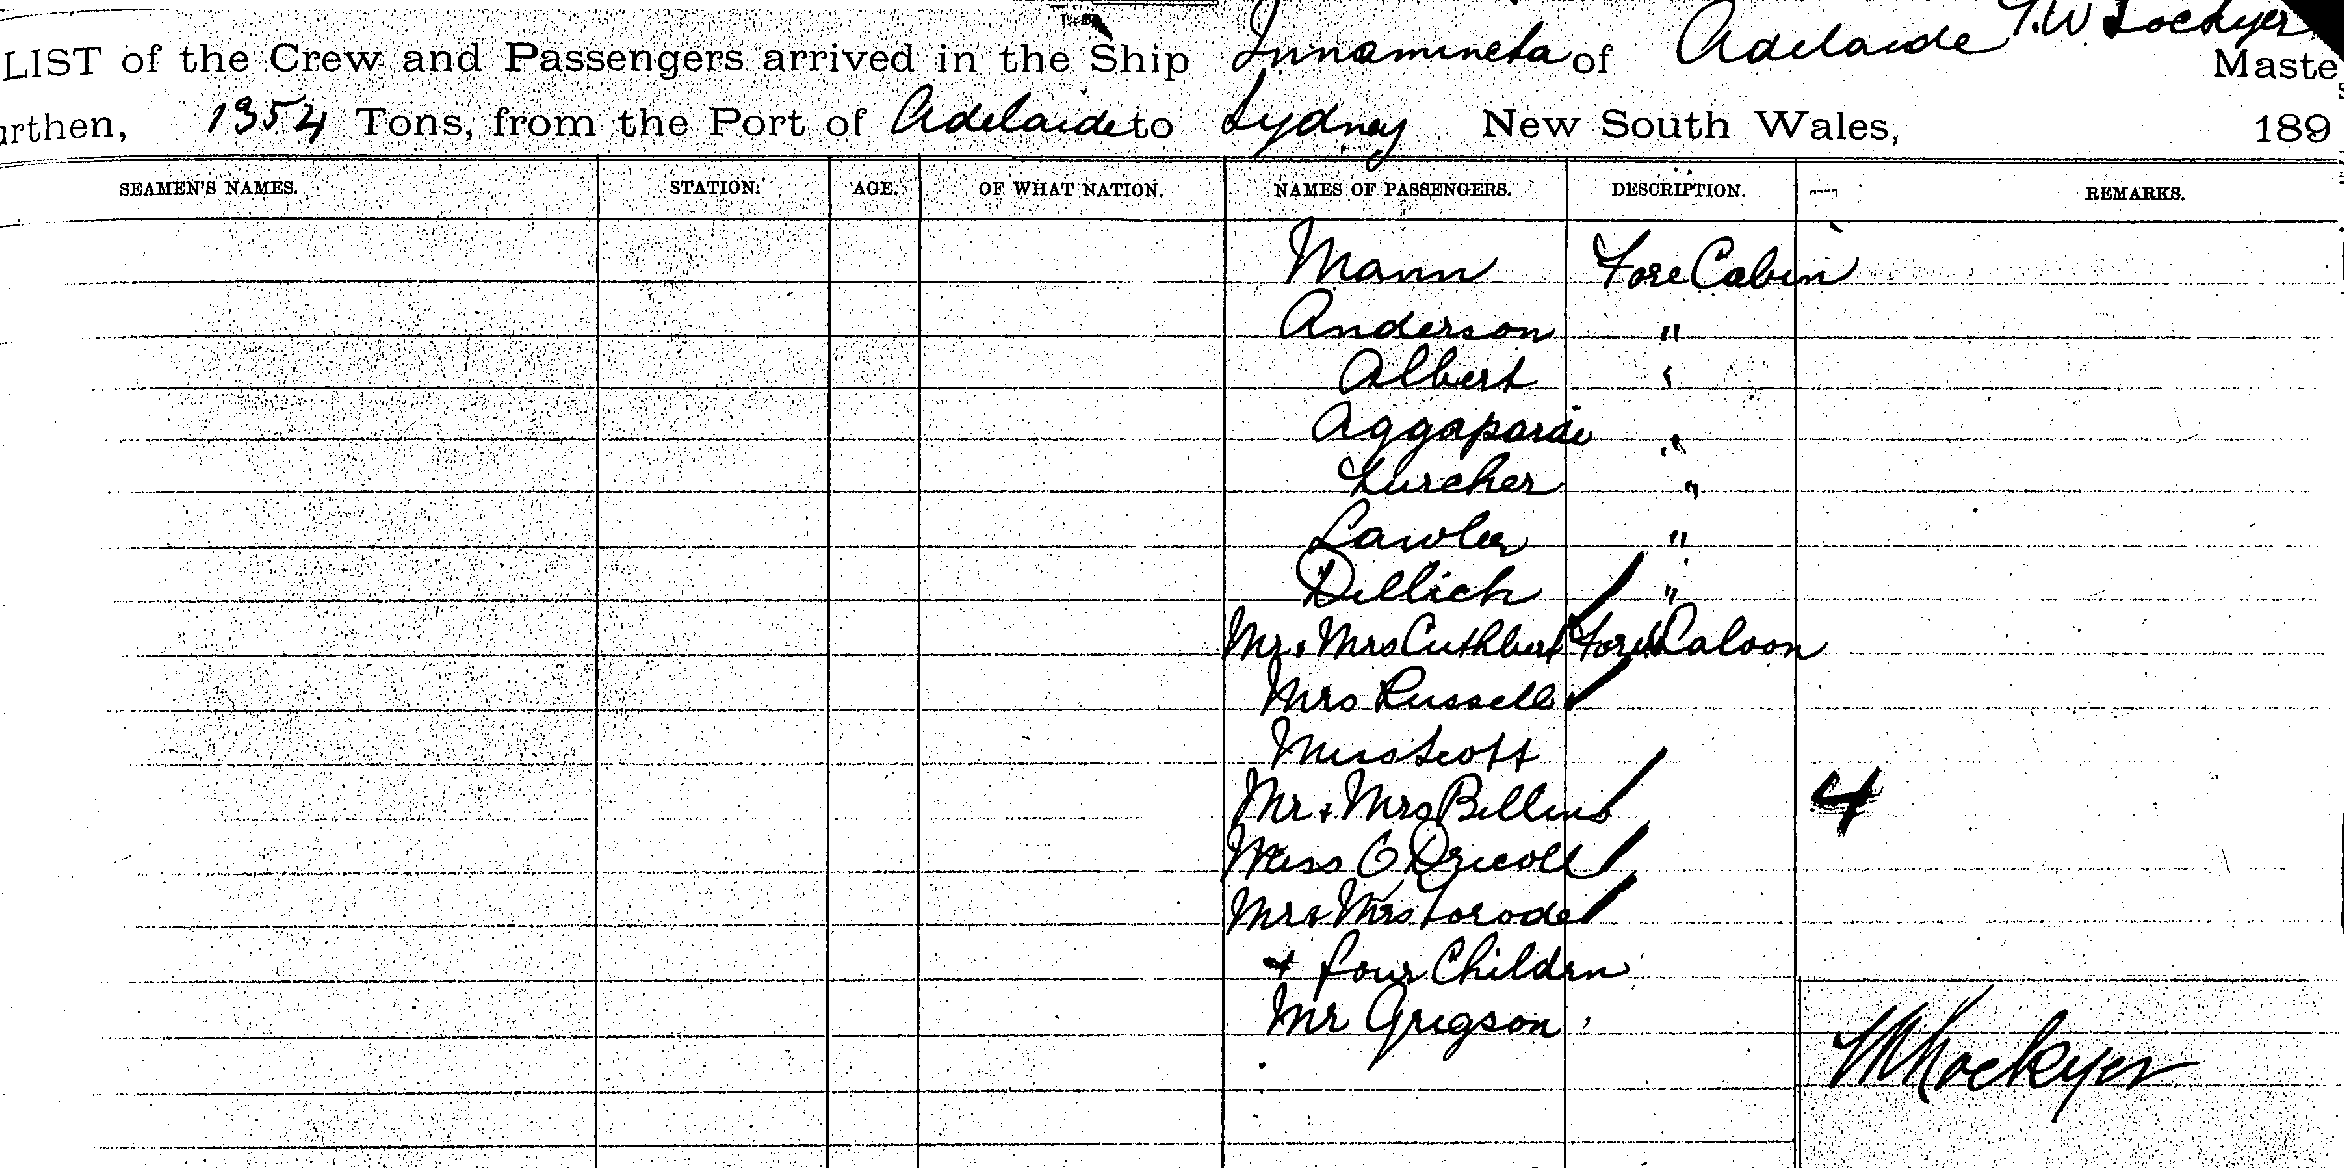 LIST of the Crew and Passengers arrived in the Ship Innamincka of Adelaide T.W. Lockyer Maste
urthen, 1354 Tons, from the Port of Adelaide to Sydney New South Wales, 189
SEAMEN'S NAMES. STATION. AGE. OF WHAT NATION. NAMES OF PASSENGERS. DESCRIPTION. REMARKS.
Mann Fore Cabin
Anderson "
Albert "
Aggaparde "
Lurcher "
Lawler "
Dillich "
Mr & Mrs Cuthbert Fore Saloon
Mrs Russell
Miss Scott
Mr & Mrs Billins 4
Miss O Dricoll
Mr & Mrs Torode
+ four Childrn
Mr Grigson
TW Lockyer